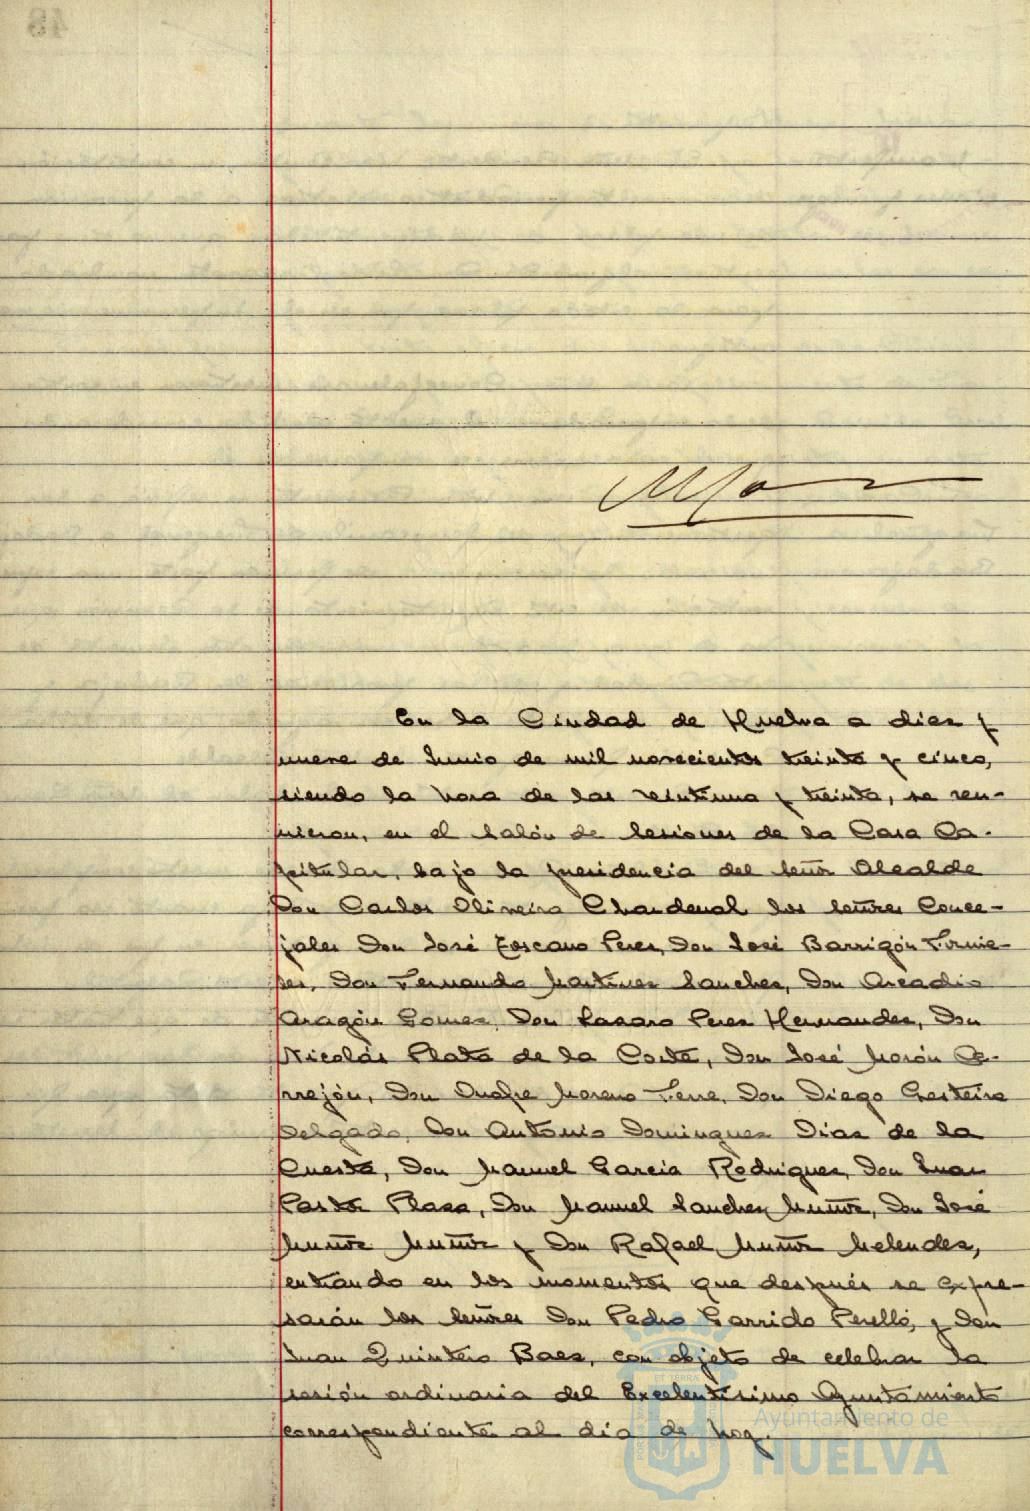 En la Ciudad de Huelva a diez y
nueve de Junio de mil novecientos treinta y cinco,
siendo la hora de las veintiuna y treinta, se reu-
nieron, en el Salón de Sesiones de la Casa Ca-
pitular, bajo la presidencia del Señor Alcalde
Don Carlos Oliveira Chardenal los señores Conce-
jales Don José Toscano Perez, Don José Barrigón Fornie-
les, Don Fernando Martinez Sanchez, Don Arcadio
Aragón Gomez, Don Lazaro Perez Hernandez, Don
Nicolás Plata de la Corte, Don José Morón
Don Onofre Moreno Don Diego
Delgado, Don Antonio Dominguez Diaz de la
Cuesta, Don Manuel Garcia Rodriguez, Don Juan
Plaza, Don Manuel Sanchez Muñoz, Don José
Muñoz Muñoz y Don Rafael Muñoz Melendez,
entrando en los momentos que después se expre-
sarán los Señores Don Pedro Garrido Perelló, y Don
Juan Quintero Baez, con objeto de celebrar la
sesión ordinaria del Excelentísimo Ayuntamiento
correspondiente al día de hoy.
Ayuntamiento de
HUELVA